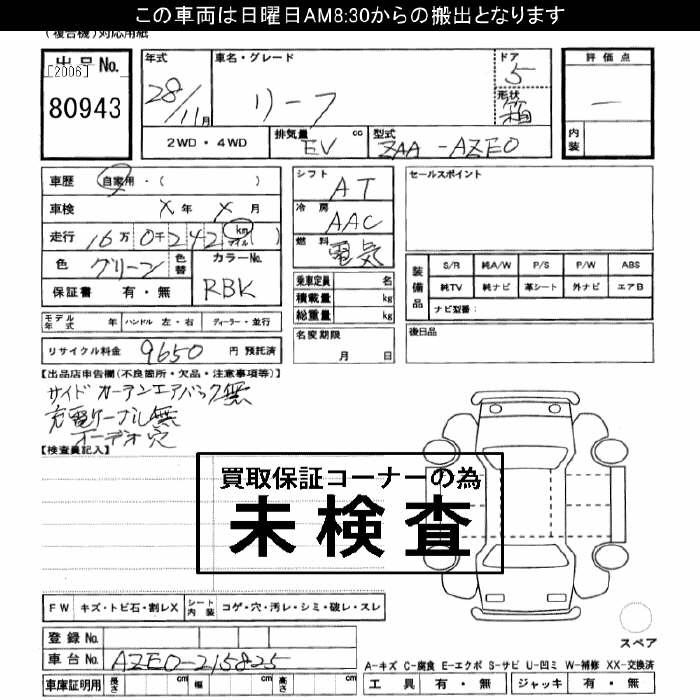 この車両は日曜日AM8:30からの搬出となります
(複合機)対応用紙
出品No. [2006] 80943
年式 28/11月
車名・グレード リーフ
ドア 5
形状 箱
評価点 —
内装
2WD・4WD
排気量 EV cc
型式 ZAA-AZEO
車歴 自家用・( )
車検 X年 X月
走行 16万0千242 km マイル ( )
色 グリーン 色替
カラーNo. RBK
保証書 有・無
シフト AT
冷房 AAC
燃料 電気
乗車定員 名
積載量 kg
総重量 kg
セールスポイント
装備品 S/R 純A/W P/S P/W ABS
純TV 純ナビ 革シート 外ナビ エアB
ナビ型番:
モデル年式 年 ハンドル 左・右 ディーラー・並行
名変期限 月 日
後日品
リサイクル料金 9650 円 預託済
【出品店申告欄(不良箇所・欠品・注意事項等)】
サイドカーテンエアバック無
充電ケーブル無
オーデオ穴
【検査員記入】
買取保証コーナーの為
未検査
FW キズ・トビ石・割レX シート内装 コゲ・穴・汚レ・シミ・破レ・スレ
登録No.
車台No. AZEO-215825
車庫証明用 長さ cm 幅 cm 高さ cm
スペア
A-キズ C-腐食 E-エクボ S-サビ U-凹ミ W-補修 XX-交換済
工具 有・無 ジャッキ 有・無